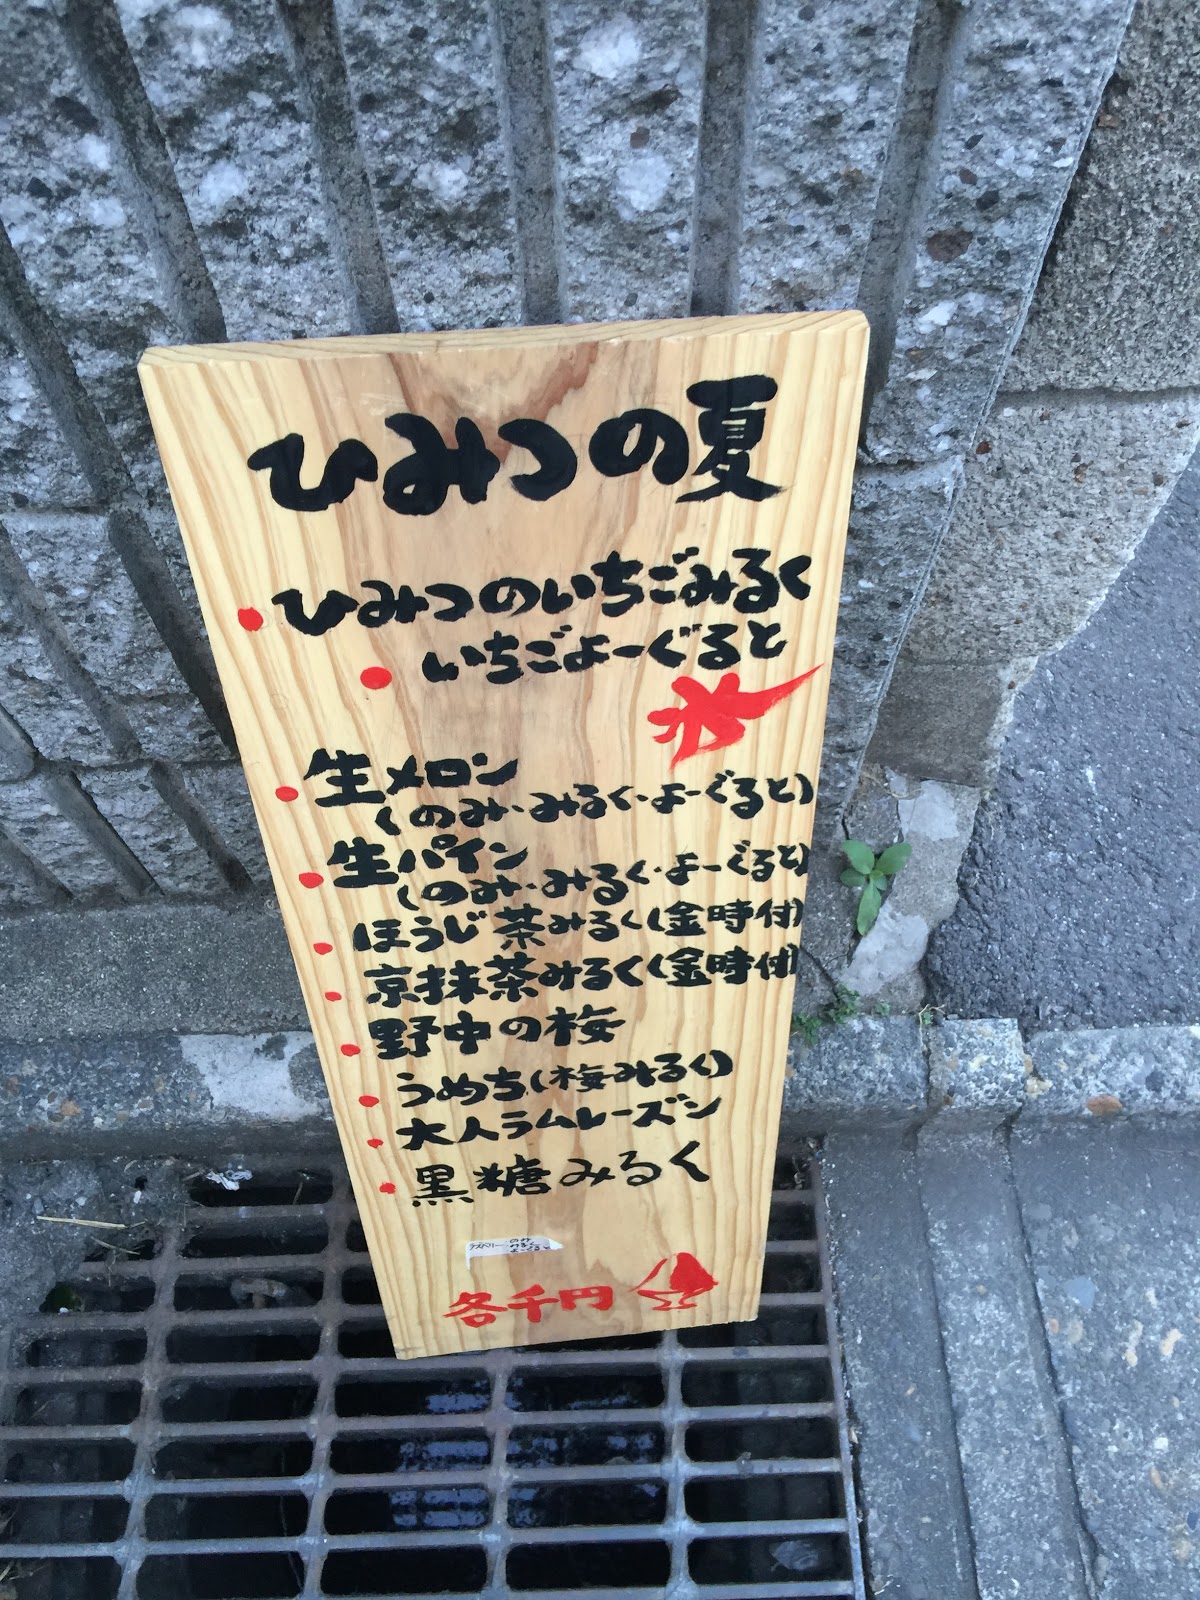 ひみつの夏
ひみつのいちごみるく
いちごよーぐると
氷
生メロン
(のみ・みるく・よーぐると)
生パイン
(のみ・みるく・よーぐると)
ほうじ茶みるく(金時付)
京抹茶みるく(金時付)
野中の梅
うめち(梅みるく)
大人ラムレーズン
黒糖みるく
のみ
みるく
よーぐると
各千円